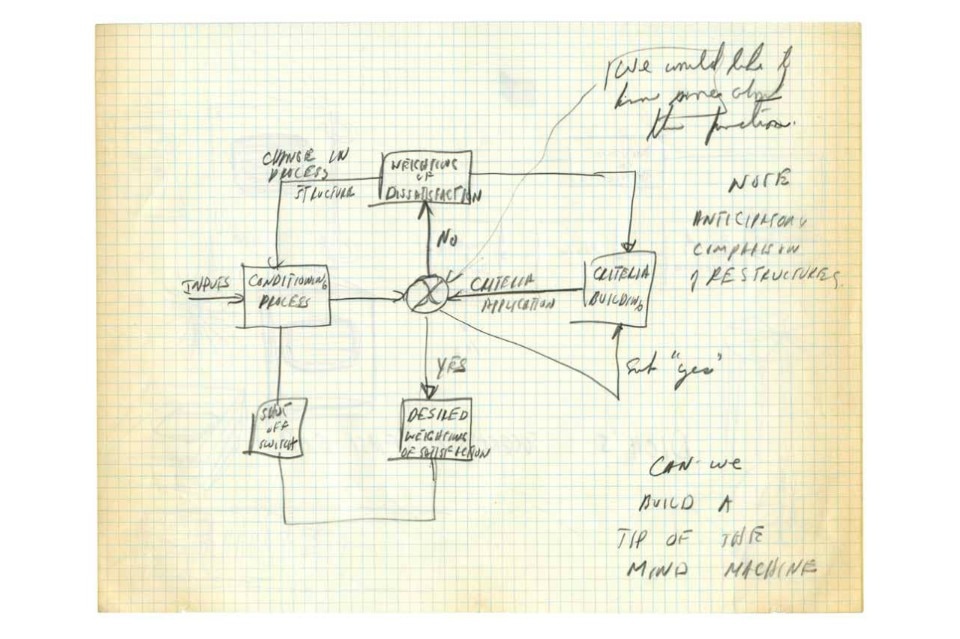 We would like to
know more about
this function.
CHANGE IN
PROCESS
STRUCTURE
WEIGHTING
OF
DISSATISFACTION
NOTE
ANTICIPATORY
COMPARISON
OF RESTRUCTURES
NO
INPUTS
CONDITIONING
PROCESS
CRITERIA
APPLICATION
CRITERIA
BUILDING
YES
"yes"
SHUT
OFF
SWITCH
DESIRED
WEIGHTING
OF SATISFACTION
CAN WE
BUILD A
TIP OF THE
MIND MACHINE